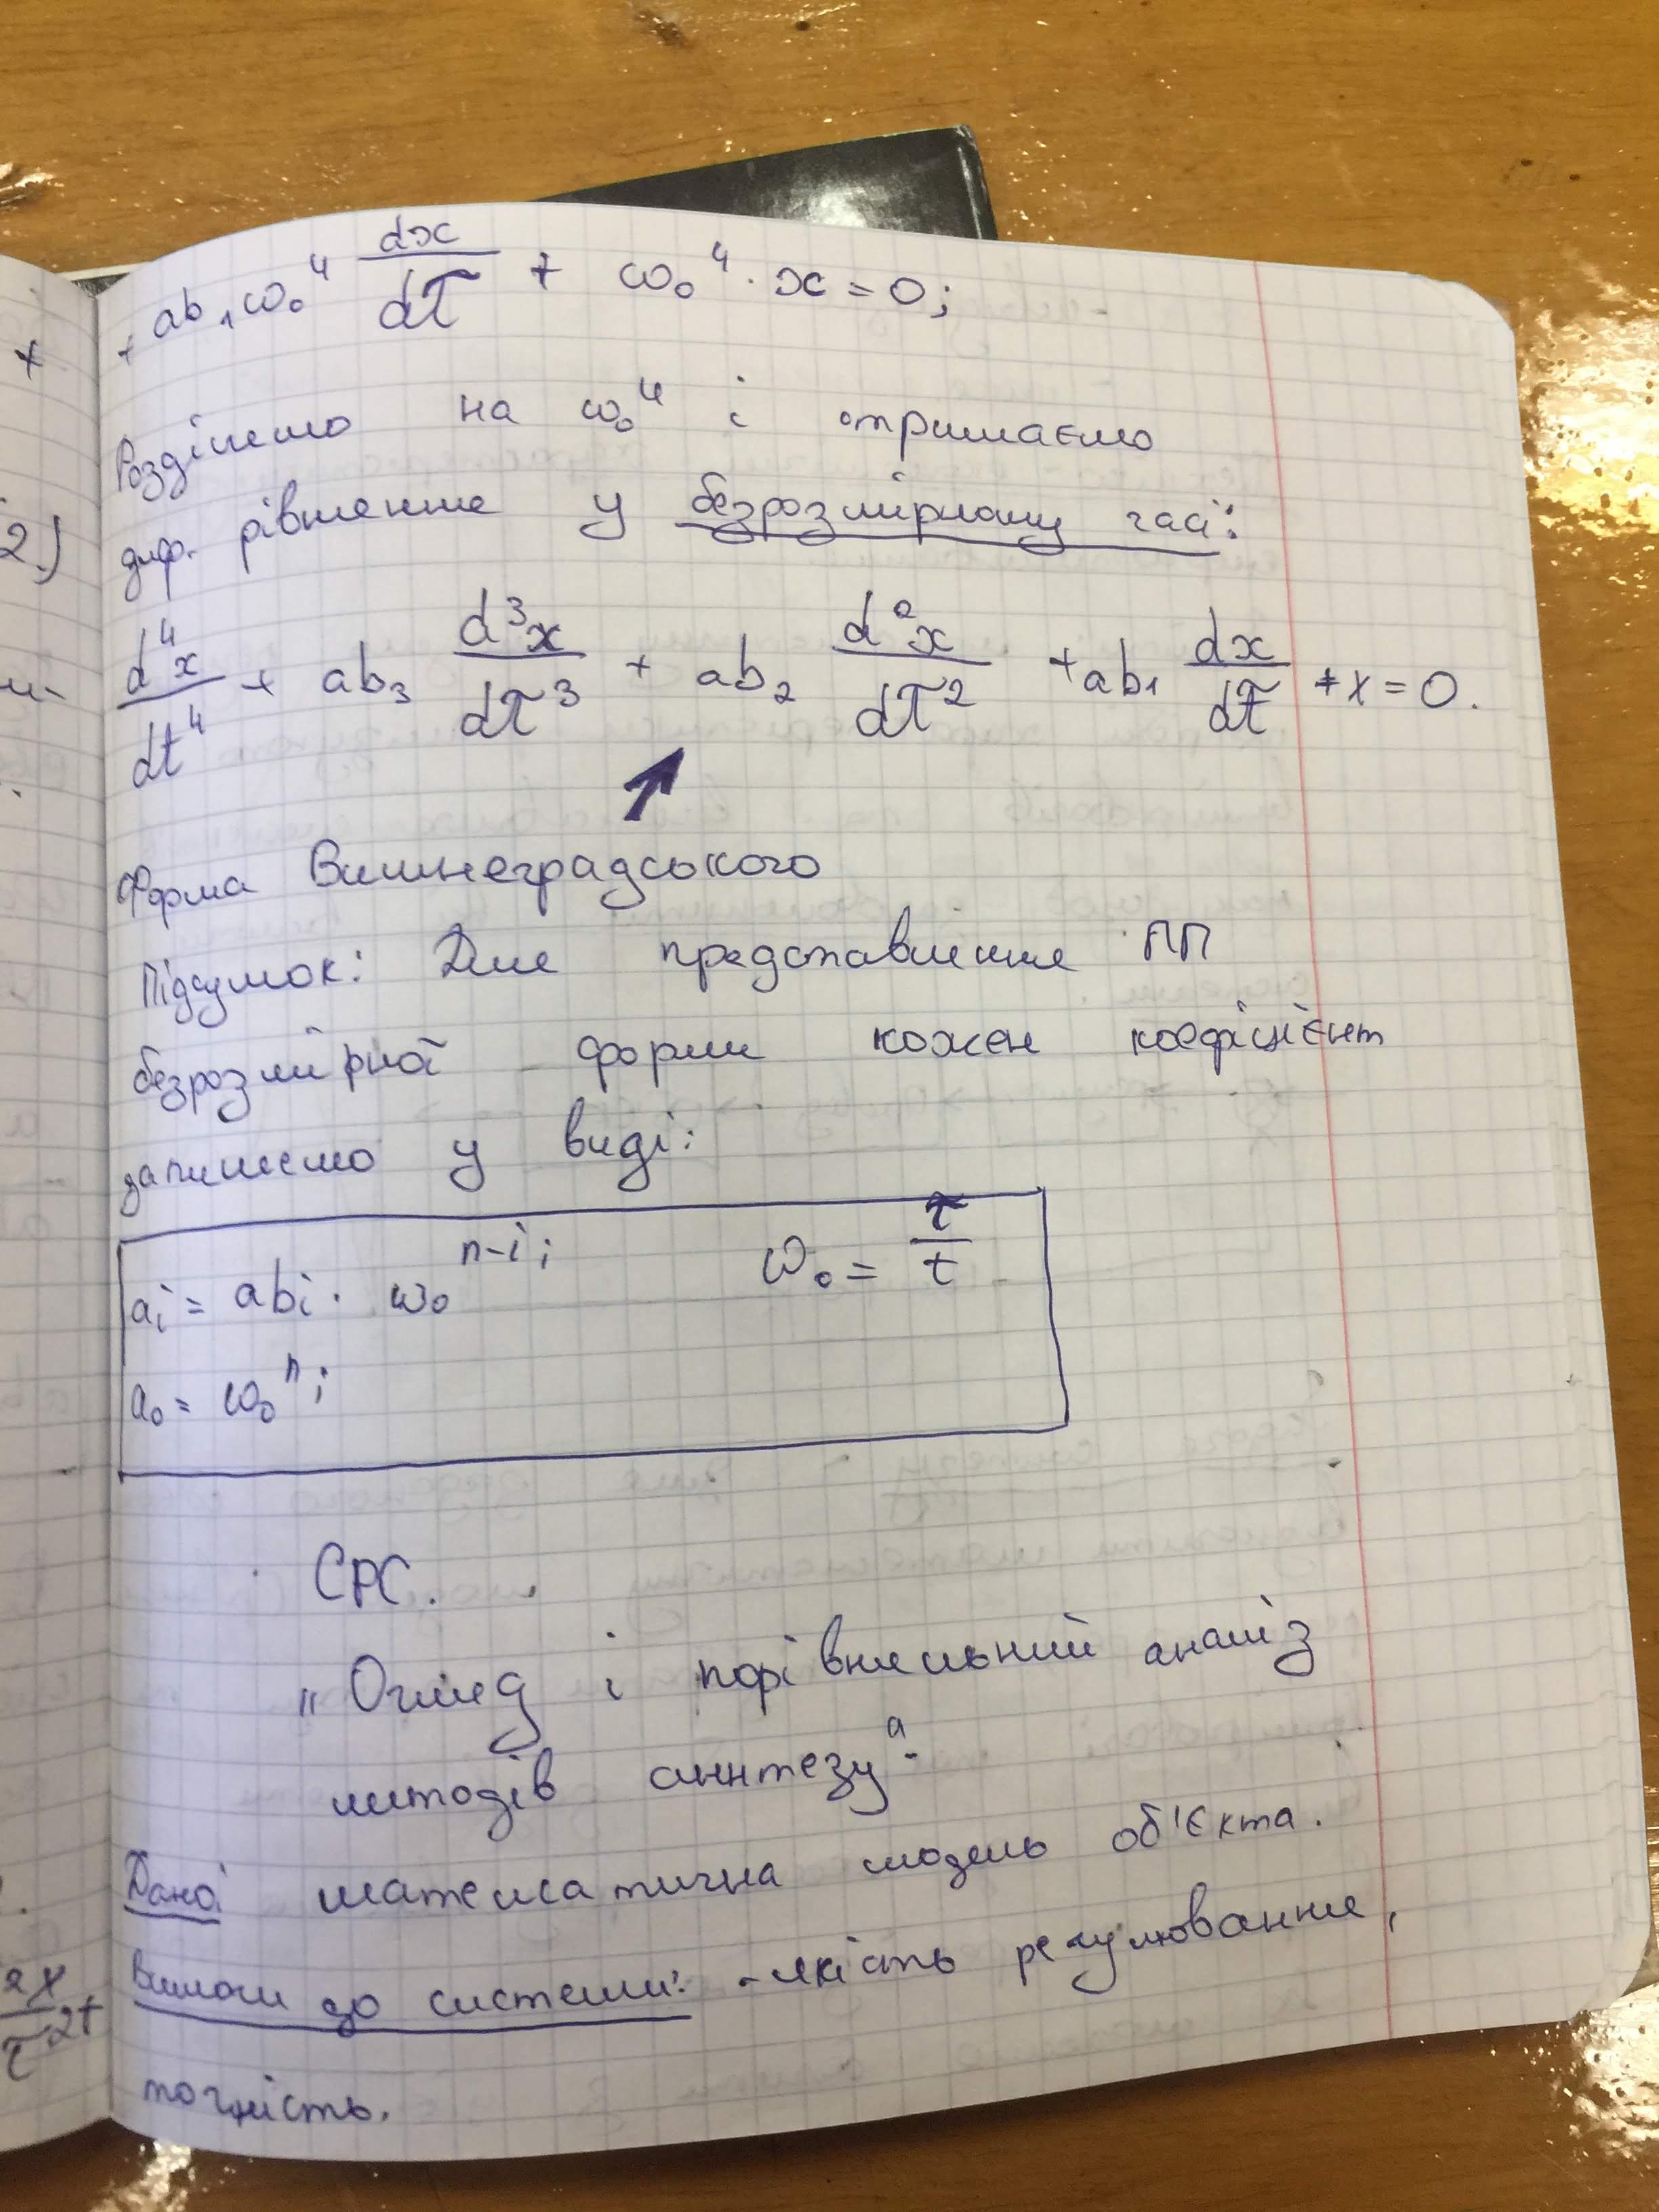 + ab₁ω₀⁴ dx/dτ + ω₀⁴ · x = 0;
Розділемо на ω₀⁴ і отримаємо
диф. рівненне у безрозмірному часі:
d⁴x/dt⁴ + ab₃ d³x/dτ³ + ab₂ d²x/dτ² + ab₁ dx/dτ + x = 0.
Форма Вишнеградського
Підсумок: Дле представленне ПП
безрозмірної форми кожен коефіцієнт
запишемо у виді:
aᵢ = abᵢ · ω₀ⁿ⁻ⁱ; ω₀ = τ/t
a₀ = ω₀ⁿ;
СРС.
„Огляд і порівняльний аналіз
методів синтезу“.
Дано: математична модель об'єкта.
Вимоги до системи: - якість регулюванне,
точність.
+
2)